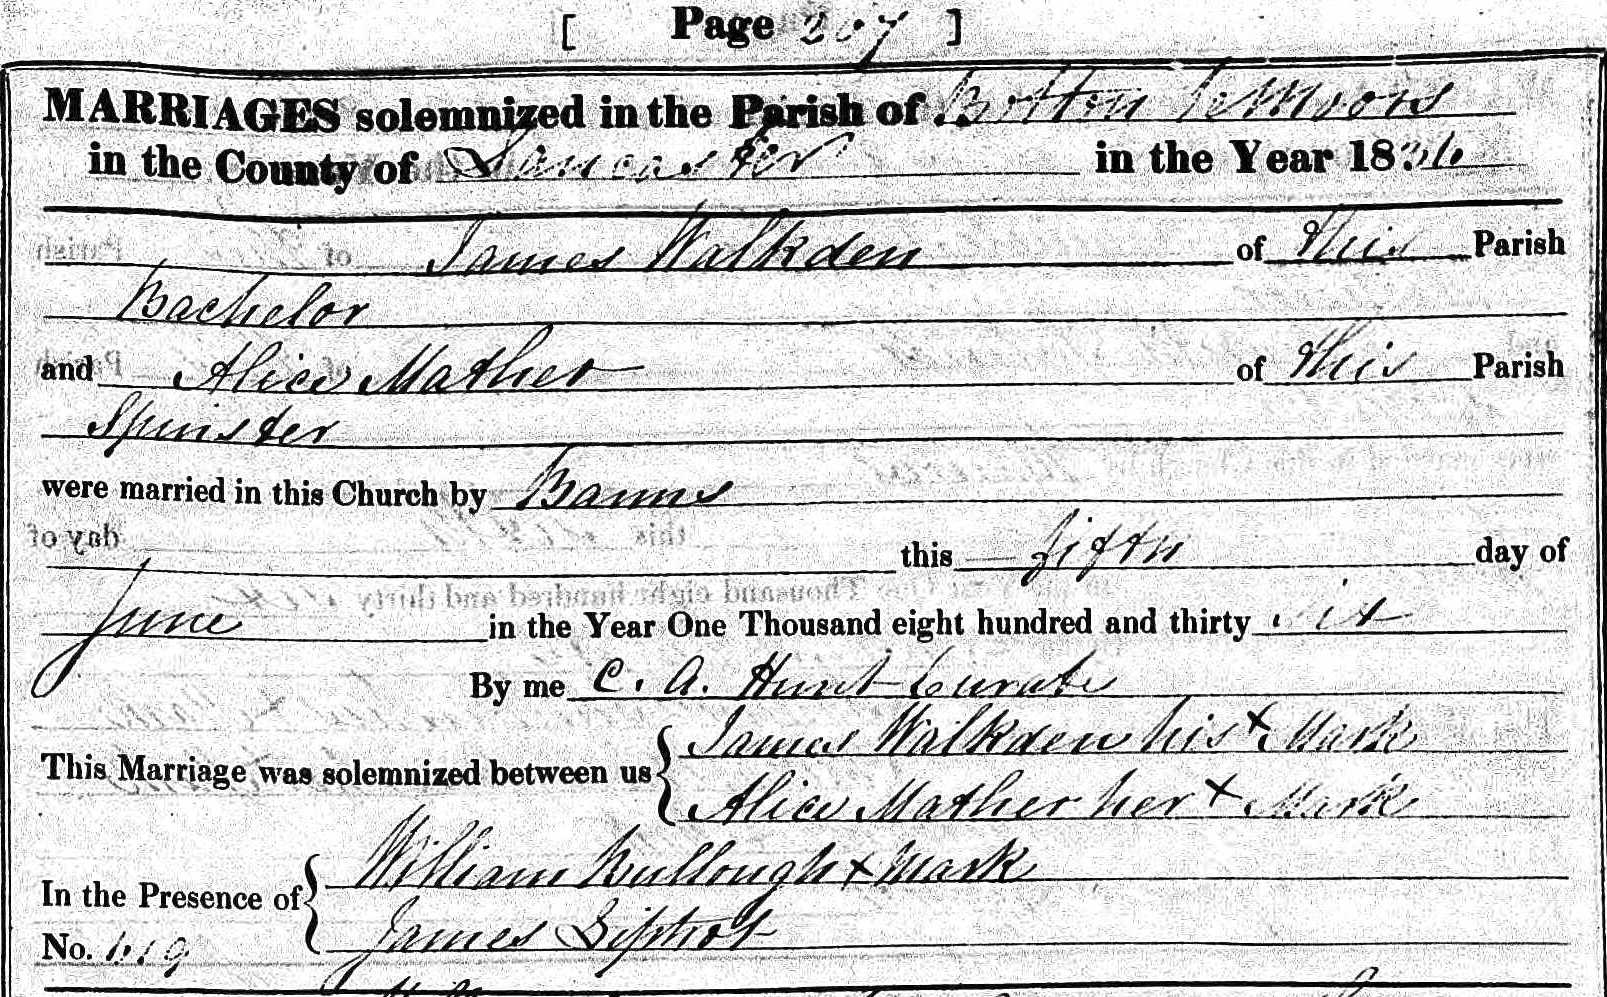 [ Page 207 ]
MARRIAGES solemnized in the Parish of Bolton le Moors
in the County of Lancaster in the Year 1836
James Walkden of this Parish
Bachelor
and Alice Mather of this Parish
Spinster
were married in this Church by Banns
this fifth day of
June in the Year One Thousand eight hundred and thirty six
By me C. A. Hunt Curate
This Marriage was solemnized between us { James Walkden his x Mark
Alice Mather her x Mark
In the Presence of { William Bullough x Mark
James Siptrot
No. 619